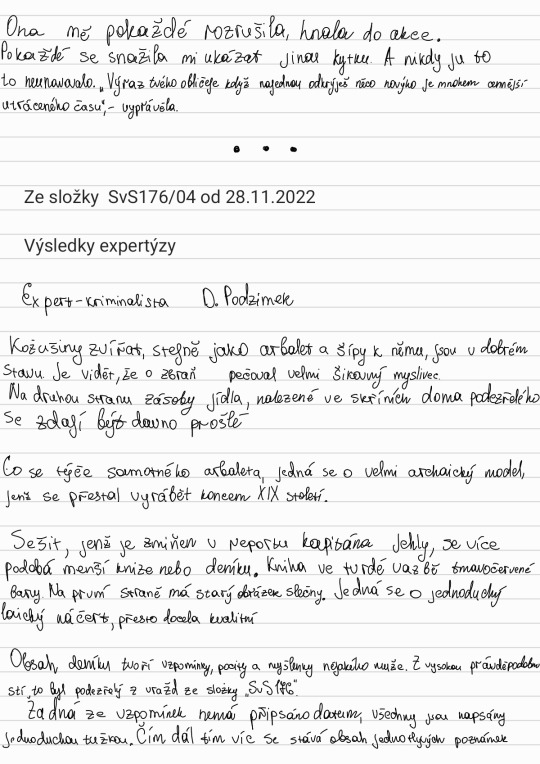 Ona mě pokaždé rozrušila, hnala do akce.
Pokaždé se snažila mi ukázat jinou kytku. A nikdy ju to
to neunavovalo. „Výraz tvého obličeje když najednou odkryješ něco nového je mnohem cennější
utráceného času", - vyprávěla.
• • •
Ze složky SvS176/04 od 28.11.2022
Výsledky expertýzy
Expert-kriminalista D. Podzimek
Kožušiny zvířat, stejně jako arbalet a šípy k němu, jsou v dobrém
stavu. Je vidět, že o zbraň pečoval velmi šikovný myslivec.
Na druhou stranu zásoby jídla, nalezené ve skříních doma podezřelého
se zdají být davno prošlé
Co se týče samotného arbaleta, jedná se o velmi archaický model,
jenž se přestal vyrábět koncem XIX století.
Sešit, jenž je zmíňen v reportu kapitána Jehly, se více
podobá menší knize nebo deníku. Kniha ve tvrdé vazbě tmavočervené
barvy. Na první straně má starý obrázek slečny. Jedná se o jednoduchý
laický náčert, přesto docela kvalitní
Obsah deníku tvoří vzpomínky, pocity a myšlenky nějakého muže. Z vysokou pravděpodobno
stí, to byl podezřelý z vražd ze složky „SvS176".
Žádná ze vzpomínek nemá připsáno datum, všechny jsou napsány
jednoduchou tužkou. Čím dál tím víc se stává obsah jednotlyvých poznámek